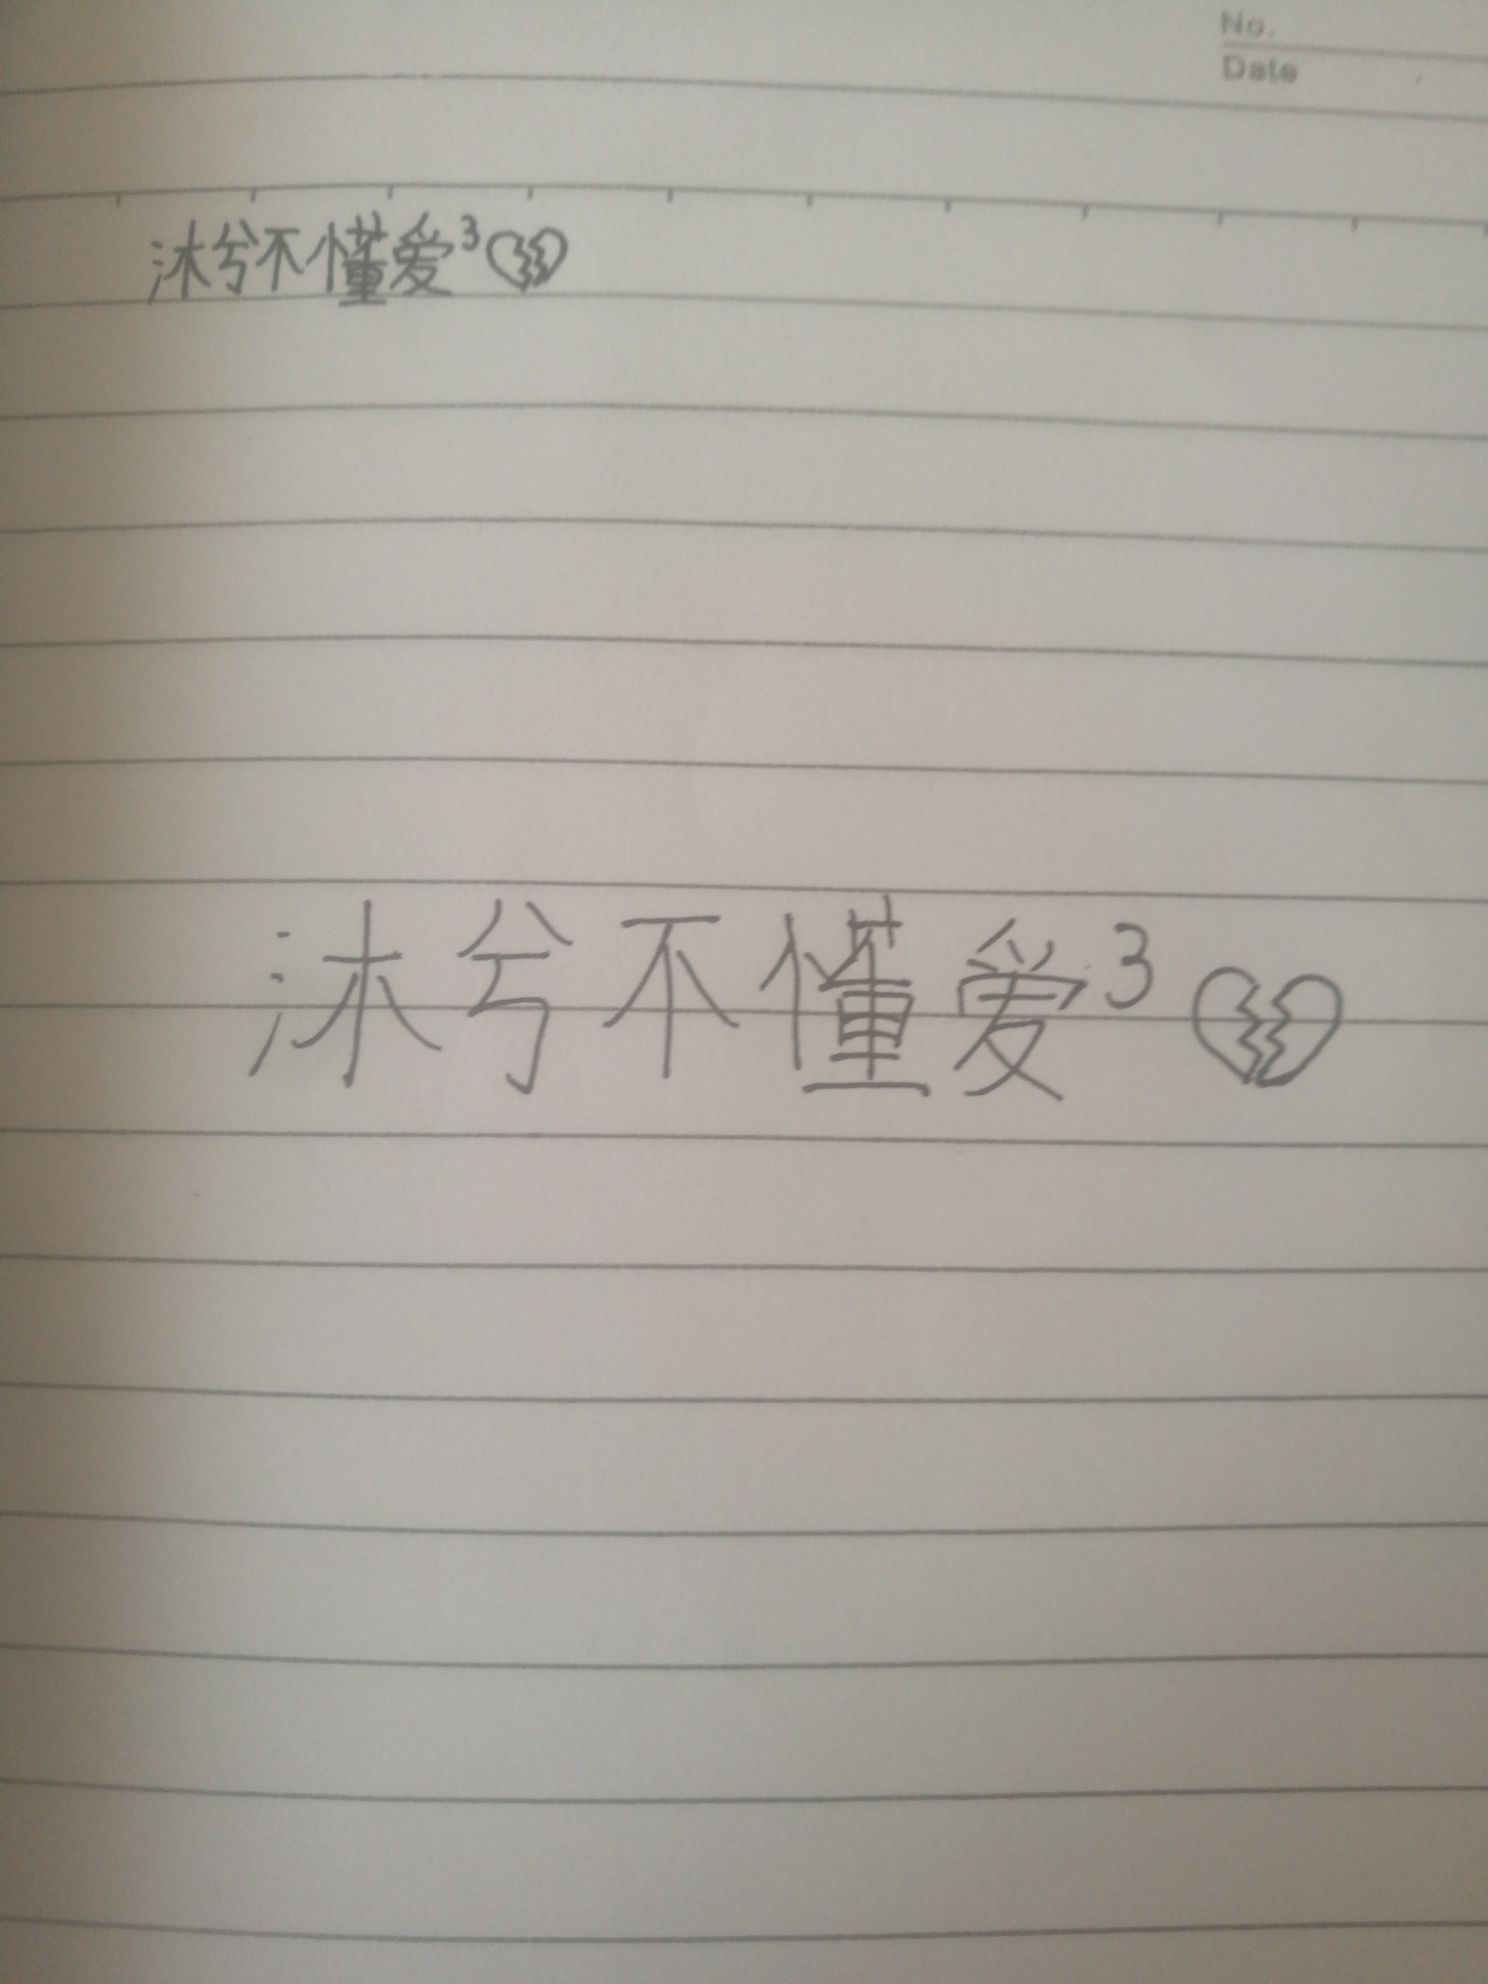 No.
Date
沐兮不懂爱³💔
沐兮不懂爱³💔